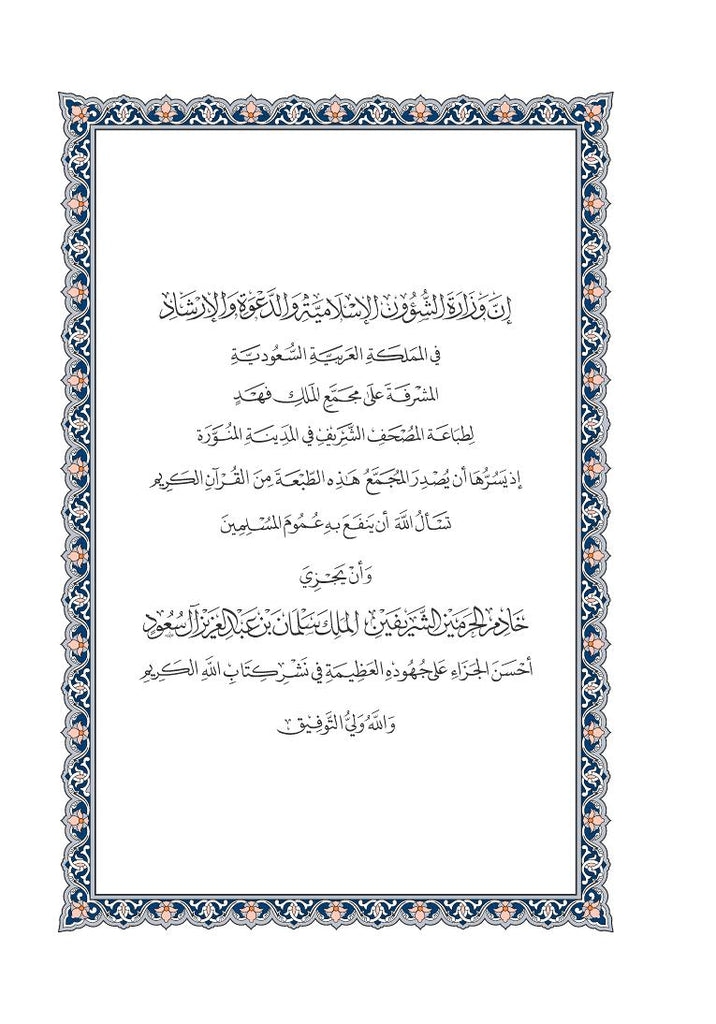 إِنَّ وَزَارَةَ الشُّؤُونِ الإِسْلَامِيَّةِ وَالدَّعْوَةِ وَالإِرْشَادِ
فِي المَمْلَكَةِ العَرَبِيَّةِ السُّعُودِيَّةِ
المُشْرِفَةَ عَلَى مُجَمَّعِ المَلِكِ فَهْدٍ
لِطِبَاعَةِ المُصْحَفِ الشَّرِيفِ فِي المَدِينَةِ المُنَوَّرَة
إِذ يَسُرُّهَا أَن يُصْدِرَ المُجَمَّعُ هَذِهِ الطَّبْعَةَ مِنَ القُرْآنِ الكَرِيمِ
تَسْأَلُ اللَّهَ أَن يَنفَعَ بِهِ عُمُومَ المُسْلِمِينَ
وَأَنْ يَجْزِيَ
خَادِمَ الحَرَمَيْنِ الشَّرِيفَيْنِ المَلِكَ سَلْمَانَ بْنَ عَبْدِ العَزِيزِ آل سُعُودٍ
أَحْسَنَ الجَزَاءِ عَلَى جُهُودِهِ العَظِيمَةِ فِي نَشْرِ كِتَابِ اللَّهِ الكَرِيمِ
وَاللَّهُ وَلِيُّ التَّوْفِيقِ